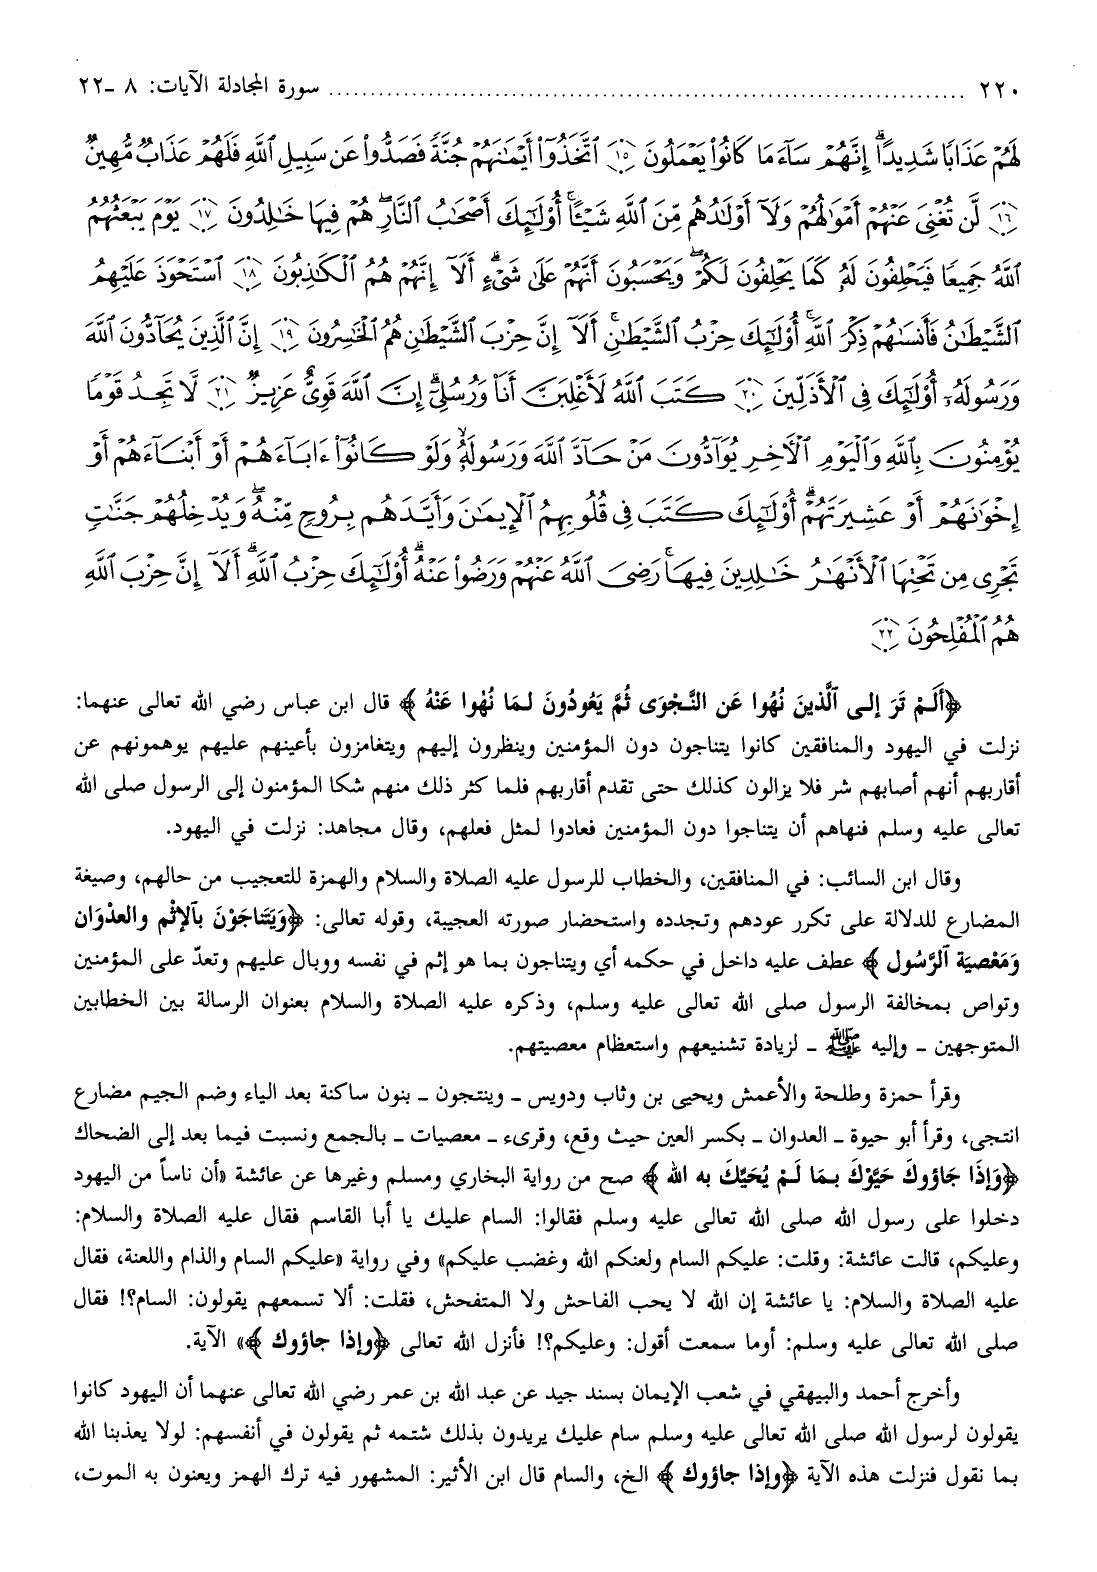 ٢٢٠ ........ سورة المجادلة الآيات: ٨ ـ٢٢
لَهُمْ عَذَابًا شَدِيدًا إِنَّهُمْ سَآءَ مَا كَانُوا۟ يَعْمَلُونَ ١٥ ٱتَّخَذُوٓا۟ أَيْمَـٰنَهُمْ جُنَّةً فَصَدُّوا۟ عَن سَبِيلِ ٱللَّهِ فَلَهُمْ عَذَابٌ مُّهِينٌ
١٦ لَّن تُغْنِىَ عَنْهُمْ أَمْوَٰلُهُمْ وَلَآ أَوْلَـٰدُهُم مِّنَ ٱللَّهِ شَيْـًٔا أُو۟لَـٰٓئِكَ أَصْحَـٰبُ ٱلنَّارِ هُمْ فِيهَا خَـٰلِدُونَ ١٧ يَوْمَ يَبْعَثُهُمُ
ٱللَّهُ جَمِيعًا فَيَحْلِفُونَ لَهُۥ كَمَا يَحْلِفُونَ لَكُمْ وَيَحْسَبُونَ أَنَّهُمْ عَلَىٰ شَىْءٍ أَلَآ إِنَّهُمْ هُمُ ٱلْكَـٰذِبُونَ ١٨ ٱسْتَحْوَذَ عَلَيْهِمُ
ٱلشَّيْطَـٰنُ فَأَنسَىٰهُمْ ذِكْرَ ٱللَّهِ أُو۟لَـٰٓئِكَ حِزْبُ ٱلشَّيْطَـٰنِ أَلَآ إِنَّ حِزْبَ ٱلشَّيْطَـٰنِ هُمُ ٱلْخَـٰسِرُونَ ١٩ إِنَّ ٱلَّذِينَ يُحَآدُّونَ ٱللَّهَ
وَرَسُولَهُۥٓ أُو۟لَـٰٓئِكَ فِى ٱلْأَذَلِّينَ ٢٠ كَتَبَ ٱللَّهُ لَأَغْلِبَنَّ أَنَا۠ وَرُسُلِىٓ إِنَّ ٱللَّهَ قَوِىٌّ عَزِيزٌ ٢١ لَّا تَجِدُ قَوْمًا
يُؤْمِنُونَ بِٱللَّهِ وَٱلْيَوْمِ ٱلْـَٔاخِرِ يُوَآدُّونَ مَنْ حَآدَّ ٱللَّهَ وَرَسُولَهُۥ وَلَوْ كَانُوٓا۟ ءَابَآءَهُمْ أَوْ أَبْنَآءَهُمْ أَوْ
إِخْوَٰنَهُمْ أَوْ عَشِيرَتَهُمْ أُو۟لَـٰٓئِكَ كَتَبَ فِى قُلُوبِهِمُ ٱلْإِيمَـٰنَ وَأَيَّدَهُم بِرُوحٍ مِّنْهُ وَيُدْخِلُهُمْ جَنَّـٰتٍ
تَجْرِى مِن تَحْتِهَا ٱلْأَنْهَـٰرُ خَـٰلِدِينَ فِيهَا رَضِىَ ٱللَّهُ عَنْهُمْ وَرَضُوا۟ عَنْهُ أُو۟لَـٰٓئِكَ حِزْبُ ٱللَّهِ أَلَآ إِنَّ حِزْبَ ٱللَّهِ
هُمُ ٱلْمُفْلِحُونَ ٢٢
﴿أَلَمْ تَرَ إلى ٱلَّذينَ نُهُوا عَن النَّجْوَى ثُمَّ يَعُودُونَ لمَا نُهُوا عَنْهُ﴾ قال ابن عباس رضي الله تعالى عنهما:
نزلت في اليهود والمنافقين كانوا يتناجون دون المؤمنين وينظرون إليهم ويتغامزون بأعينهم عليهم يوهمونهم عن
أقاربهم أنهم أصابهم شر فلا يزالون كذلك حتى تقدم أقاربهم فلما كثر ذلك منهم شكا المؤمنون إلى الرسول صلى الله
تعالى عليه وسلم فنهاهم أن يتناجوا دون المؤمنين فعادوا لمثل فعلهم، وقال مجاهد: نزلت في اليهود.
وقال ابن السائب: في المنافقين، والخطاب للرسول عليه الصلاة والسلام والهمزة للتعجيب من حالهم، وصيغة
المضارع للدلالة على تكرر عودهم وتجدده واستحضار صورته العجيبة، وقوله تعالى: ﴿وَيَتَناجَوْنَ بٱلإثْم والعدْوَان
وَمَعْصيَة ٱلرَّسُول﴾ عطف عليه داخل في حكمه أي ويتناجون بما هو إثم في نفسه ووبال عليهم وتعدّ على المؤمنين
وتواص بمخالفة الرسول صلى الله تعالى عليه وسلم، وذكره عليه الصلاة والسلام بعنوان الرسالة بين الخطابين
المتوجهين ـ وإليه ﷺ ـ لزيادة تشنيعهم واستعظام معصيتهم.
وقرأ حمزة وطلحة والأعمش ويحيى بن وثاب ودويس ـ وينتجون ـ بنون ساكنة بعد الياء وضم الجيم مضارع
انتجى، وقرأ أبو حيوة ـ العدوان ـ بكسر العين حيث وقع، وقرىء ـ معصيات ـ بالجمع ونسبت فيما بعد إلى الضحاك
﴿وَإذَا جَاؤوكَ حَيَّوْكَ بمَا لَمْ يُحَيِّكَ به الله﴾ صح من رواية البخاري ومسلم وغيرها عن عائشة «أن ناساً من اليهود
دخلوا على رسول الله صلى الله تعالى عليه وسلم فقالوا: السام عليك يا أبا القاسم فقال عليه الصلاة والسلام:
وعليكم، قالت عائشة: وقلت: عليكم السام ولعنكم الله وغضب عليكم» وفي رواية «عليكم السام والذام واللعنة، فقال
عليه الصلاة والسلام: يا عائشة إن الله لا يحب الفاحش ولا المتفحش، فقلت: ألا تسمعهم يقولون: السام؟! فقال
صلى الله تعالى عليه وسلم: أوما سمعت أقول: وعليكم؟! فأنزل الله تعالى ﴿وإذا جاؤوك﴾» الآية.
وأخرج أحمد والبيهقي في شعب الإيمان بسند جيد عن عبد الله بن عمر رضي الله تعالى عنهما أن اليهود كانوا
يقولون لرسول الله صلى الله تعالى عليه وسلم سام عليك يريدون بذلك شتمه ثم يقولون في أنفسهم: لولا يعذبنا الله
بما نقول فنزلت هذه الآية ﴿وإذا جاؤوك﴾ الخ، والسام قال ابن الأثير: المشهور فيه ترك الهمز ويعنون به الموت،